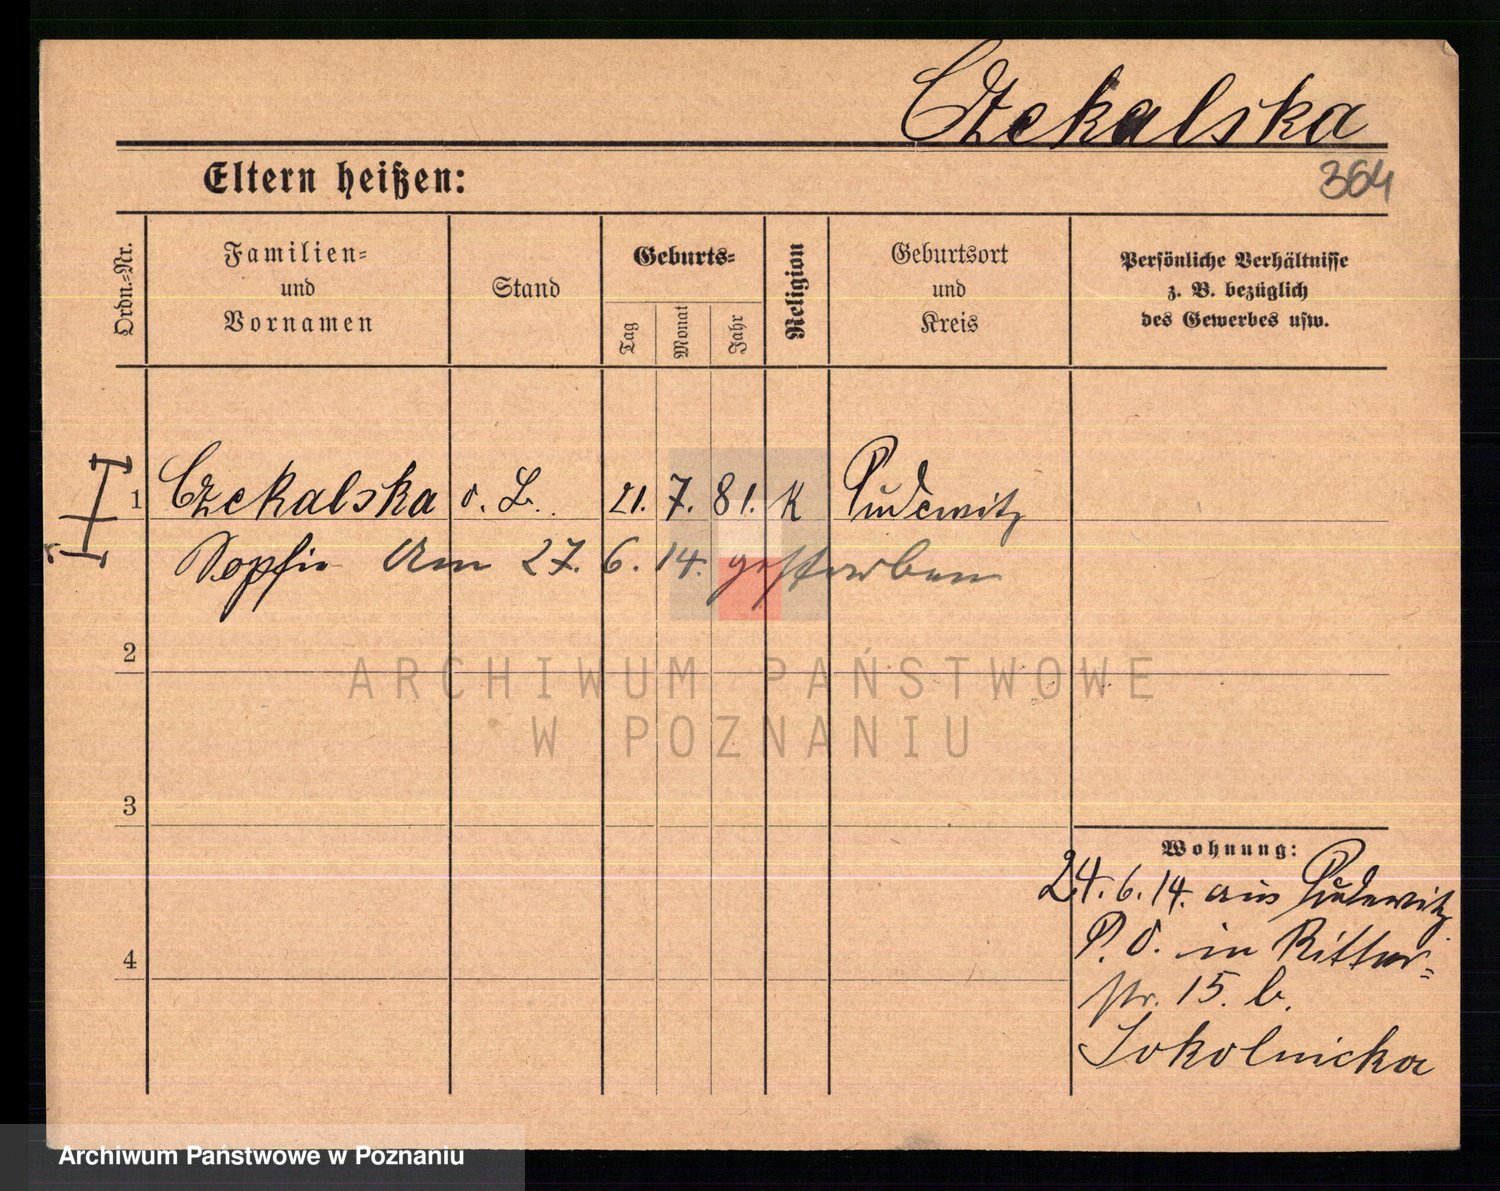 Czekalska
364
Eltern heißen:
Ordn.-Nr.
Familien-
und
Vornamen
Stand
Geburts-
Tag
Monat
Jahr
Religion
Geburtsort
und
Kreis
Persönliche Verhältnisse
z. B. bezüglich
des Gewerbes usw.
1 Czekalska o. B. 21. 7. 81. K Pudewitz
Sophie Am 27. 6. 14. gestorben
2
ARCHIWUM PAŃSTWOWE
W POZNANIU
3
Wohnung:
24. 6. 14. aus Pudewitz
P. O. in Ritter-
4
str. 15. b.
Sokolnicka
Archiwum Państwowe w Poznaniu